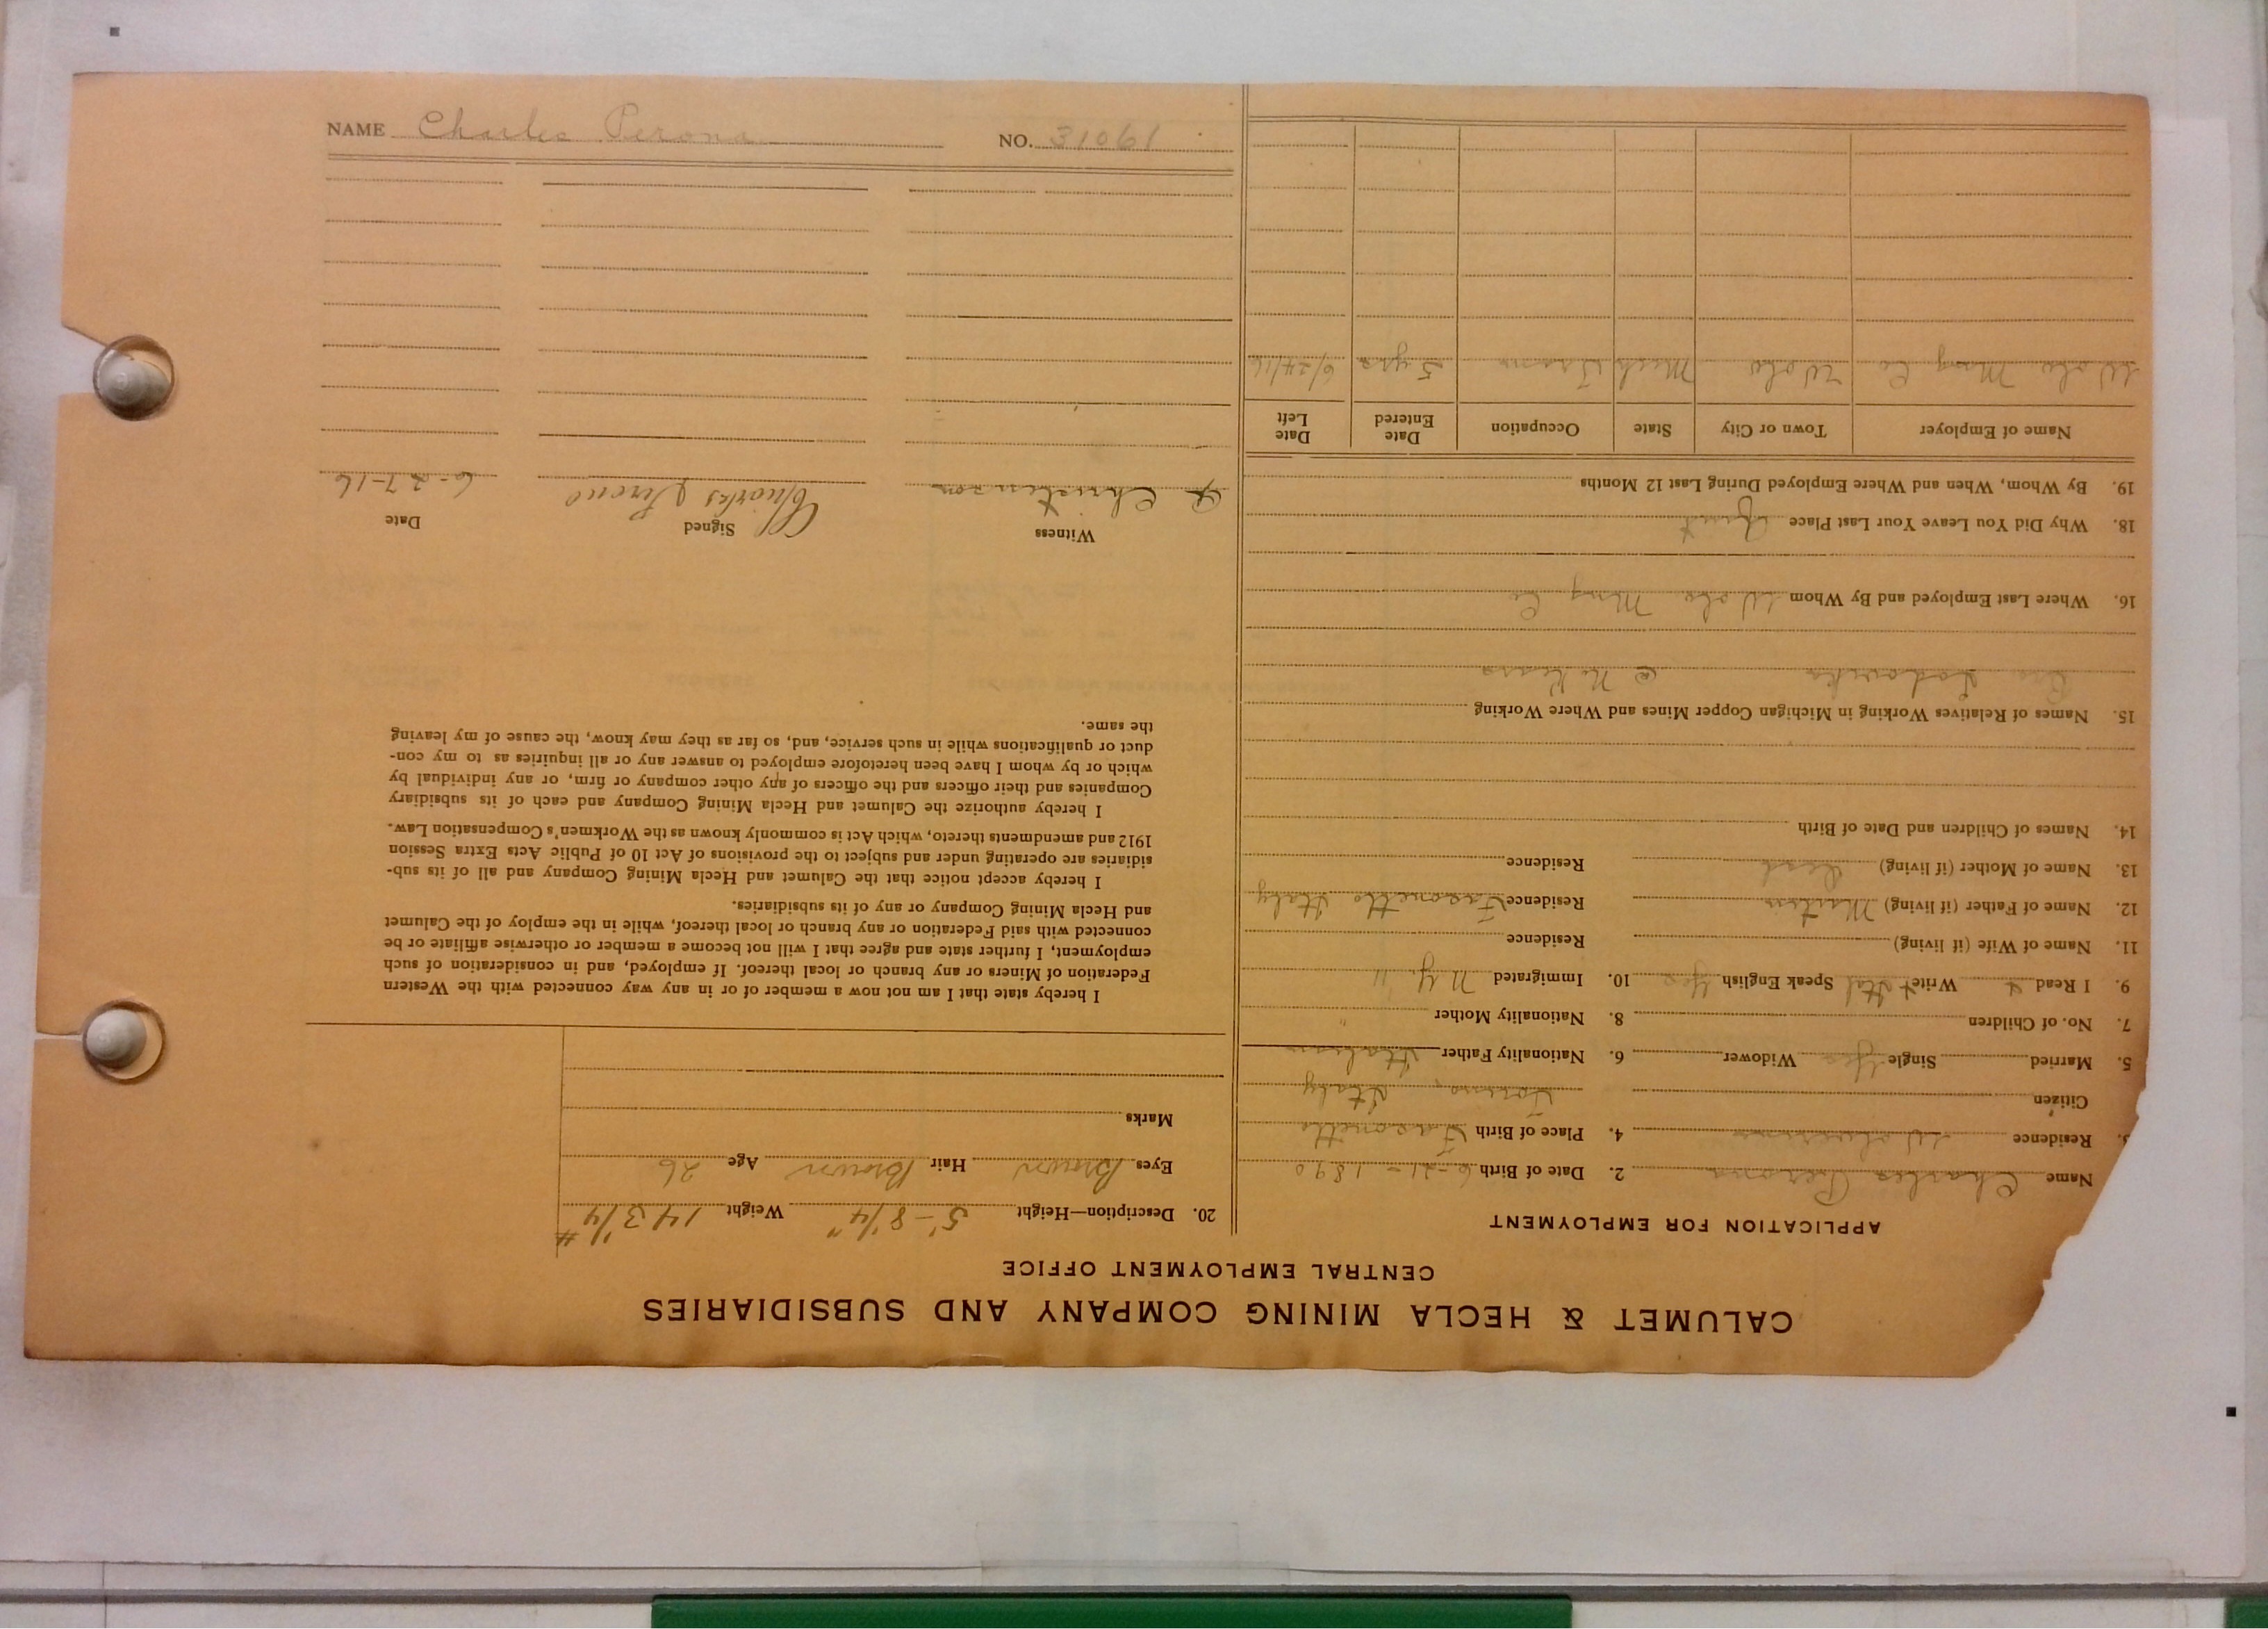 CALUMET & HECLA MINING COMPANY AND SUBSIDIARIES
CENTRAL EMPLOYMENT OFFICE
APPLICATION FOR EMPLOYMENT
Name Charles Perona 2. Date of Birth 6-21-1890
Residence Wolverine 4. Place of Birth
Citizen Italy
5. Married Single Yes Widower 6. Nationality Father Italian
7. No. of Children 8. Nationality Mother "
9. I Read Write Ital Speak English Yes 10. Immigrated N.Y. 11
11. Name of Wife (if living) Residence
12. Name of Father (if living) Residence Italy
13. Name of Mother (if living) Dead Residence
14. Names of Children and Date of Birth
15. Names of Relatives Working in Michigan Copper Mines and Where Working
Bro @ No Kears
16. Where Last Employed and By Whom Wolv. Mng Co
18. Why Did You Leave Your Last Place Quit
19. By Whom, When and Where Employed During Last 12 Months
Name of Employer Town or City State Occupation Date Entered Date Left
Wolv. Mng Co Wolv Mich Tram 5 yrs 6/24/16
20. Description—Height 5'-8 1/4" Weight 143 1/4 #
Eyes Brown Hair Brown Age 26
Marks
I hereby state that I am not now a member of or in any way connected with the Western
Federation of Miners or any branch or local thereof. If employed, and in consideration of such
employment, I further state and agree that I will not become a member or otherwise affiliate or be
connected with said Federation or any branch or local thereof, while in the employ of the Calumet
and Hecla Mining Company or any of its subsidiaries.
I hereby accept notice that the Calumet and Hecla Mining Company and all of its sub-
sidiaries are operating under and subject to the provisions of Act 10 of Public Acts Extra Session
1912 and amendments thereto, which Act is commonly known as the Workmen's Compensation Law.
I hereby authorize the Calumet and Hecla Mining Company and each of its subsidiary
Companies and their officers and the officers of any other company or firm, or any individual by
which or by whom I have been heretofore employed to answer any or all inquiries as to my con-
duct or qualifications while in such service, and, so far as they may know, the cause of my leaving
the same.
Witness Signed Date
Christenson 6-27-16
NAME Charles Perona NO. 31061